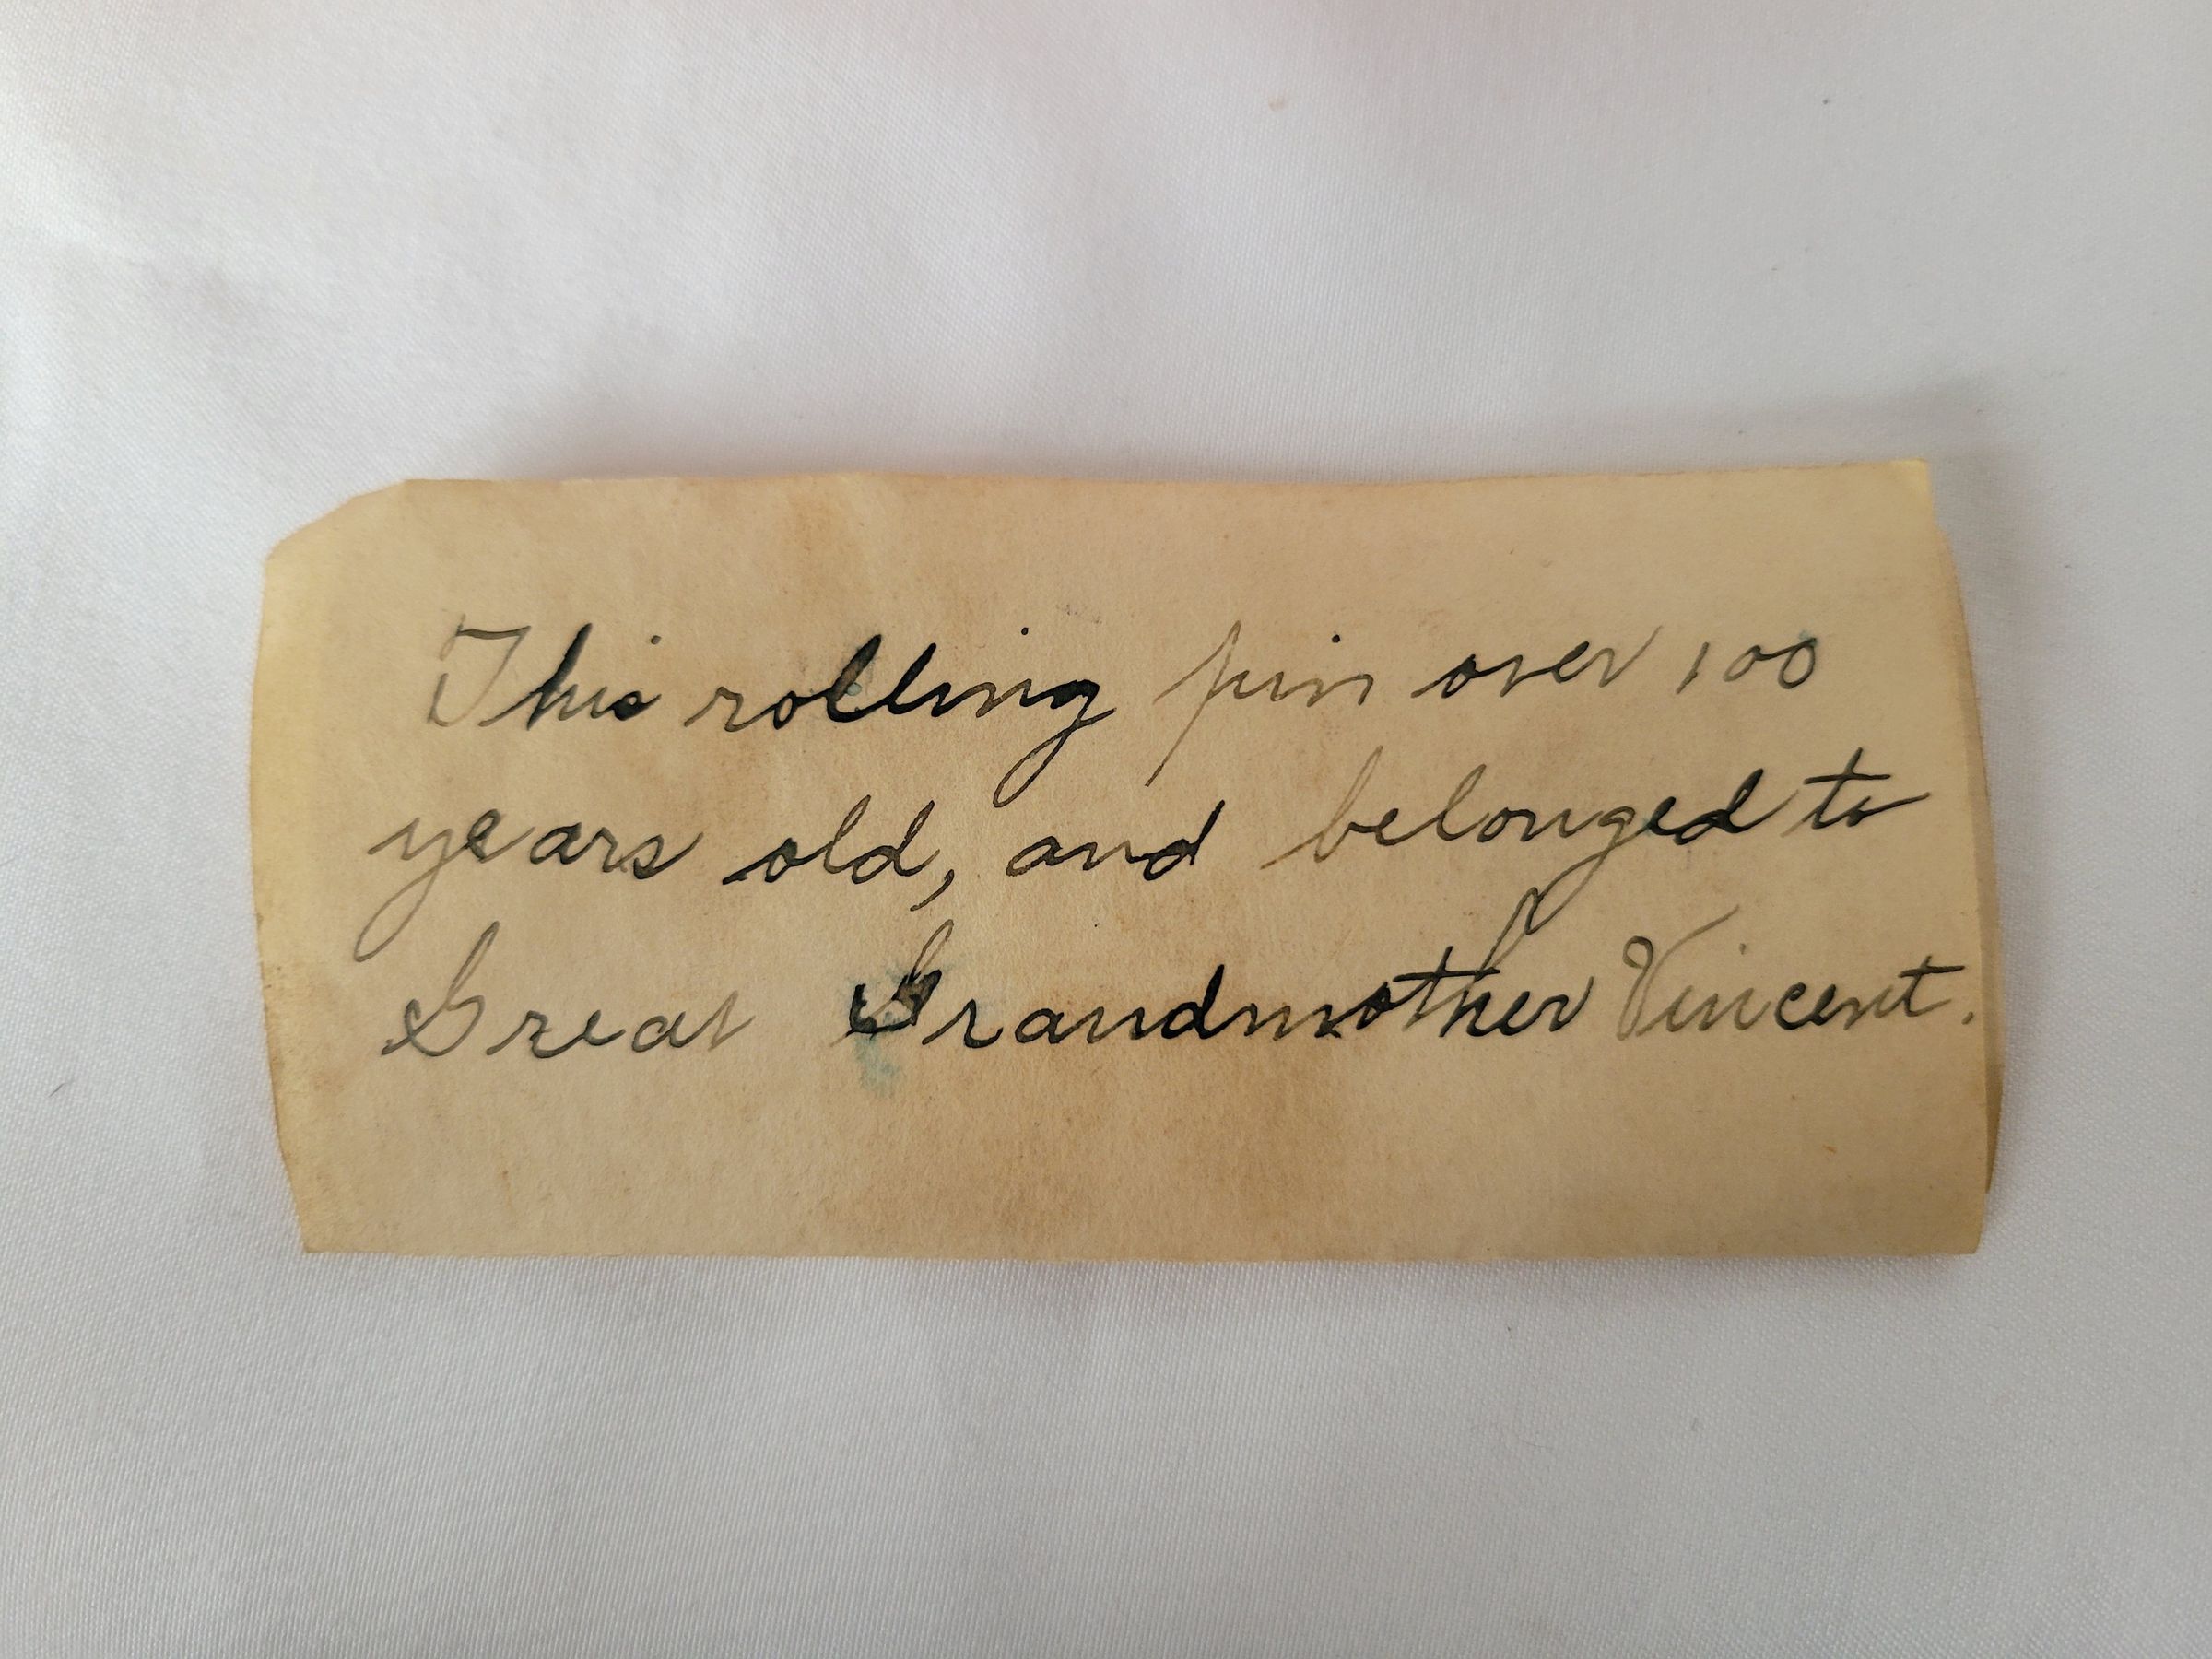 This rolling pin over 100
years old, and belonged to
Great Grandmother Vincent.